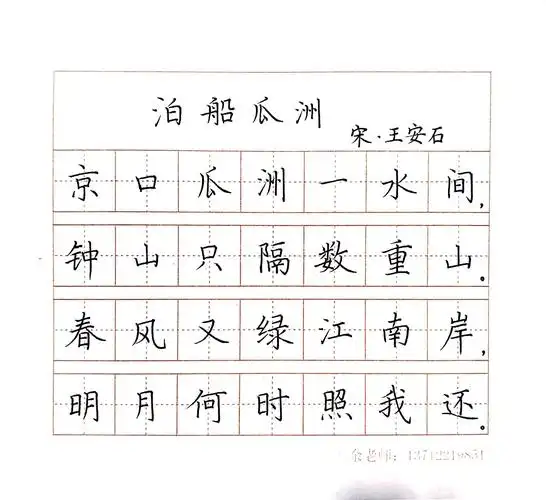 泊船瓜洲
宋·王安石
京口瓜洲一水间，
钟山只隔数重山。
春风又绿江南岸，
明月何时照我还。
余老师：13712219851